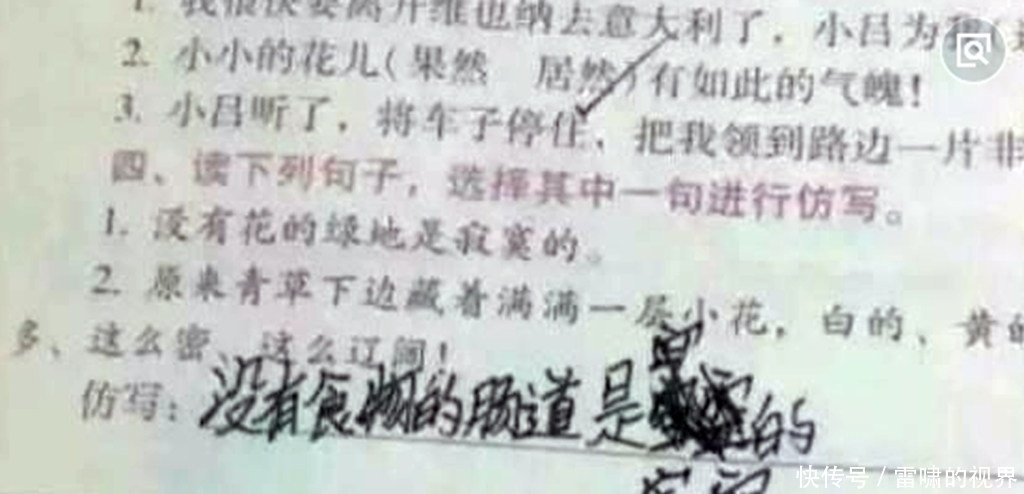 1. 我很快要离开维也纳去意大利了，小吕为
2. 小小的花儿(果然 居然)有如此的气魄!
3. 小吕听了，将车子停住、把我领到路边一片非
四、读下列句子，选择其中一句进行仿写。
1. 没有花的绿地是寂寞的。
2. 原来青草下边藏着满满一层小花，白的、黄的
多、这么密、这么辽阔!
仿写: 没有食物的肠道是的
快传号 / 雷啸的视界